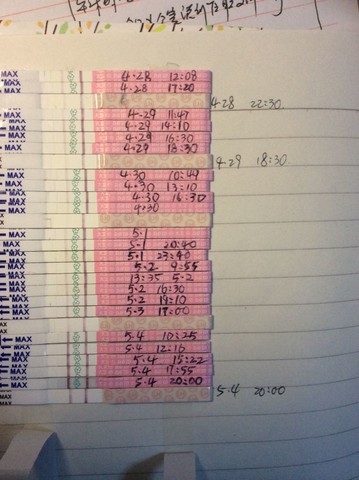 MAX 4-28 12:08
MAX 4-28 17:20
4-28 22:30
MAX 4-29 11:47
MAX 4-29 14:10
MAX 4-29 16:30
MAX 4-29 18:30
4-29 18:30
MAX 4-30 10:49
MAX 4-30 13:10
MAX 4-30 16:30
MAX 4-30
MAX 5-1
MAX 5-1 20:40
MAX 5-1 23:40
MAX 5-2 9:55
MAX 13:35 5-2
MAX 5-2 16:30
MAX 5-2 19:10
MAX 5-3 17:00
MAX 5-4 10:25
MAX 5-4 12:16
MAX 5-4 15:22
MAX 5-4 17:55
MAX 5-4 20:00
5-4 20:00